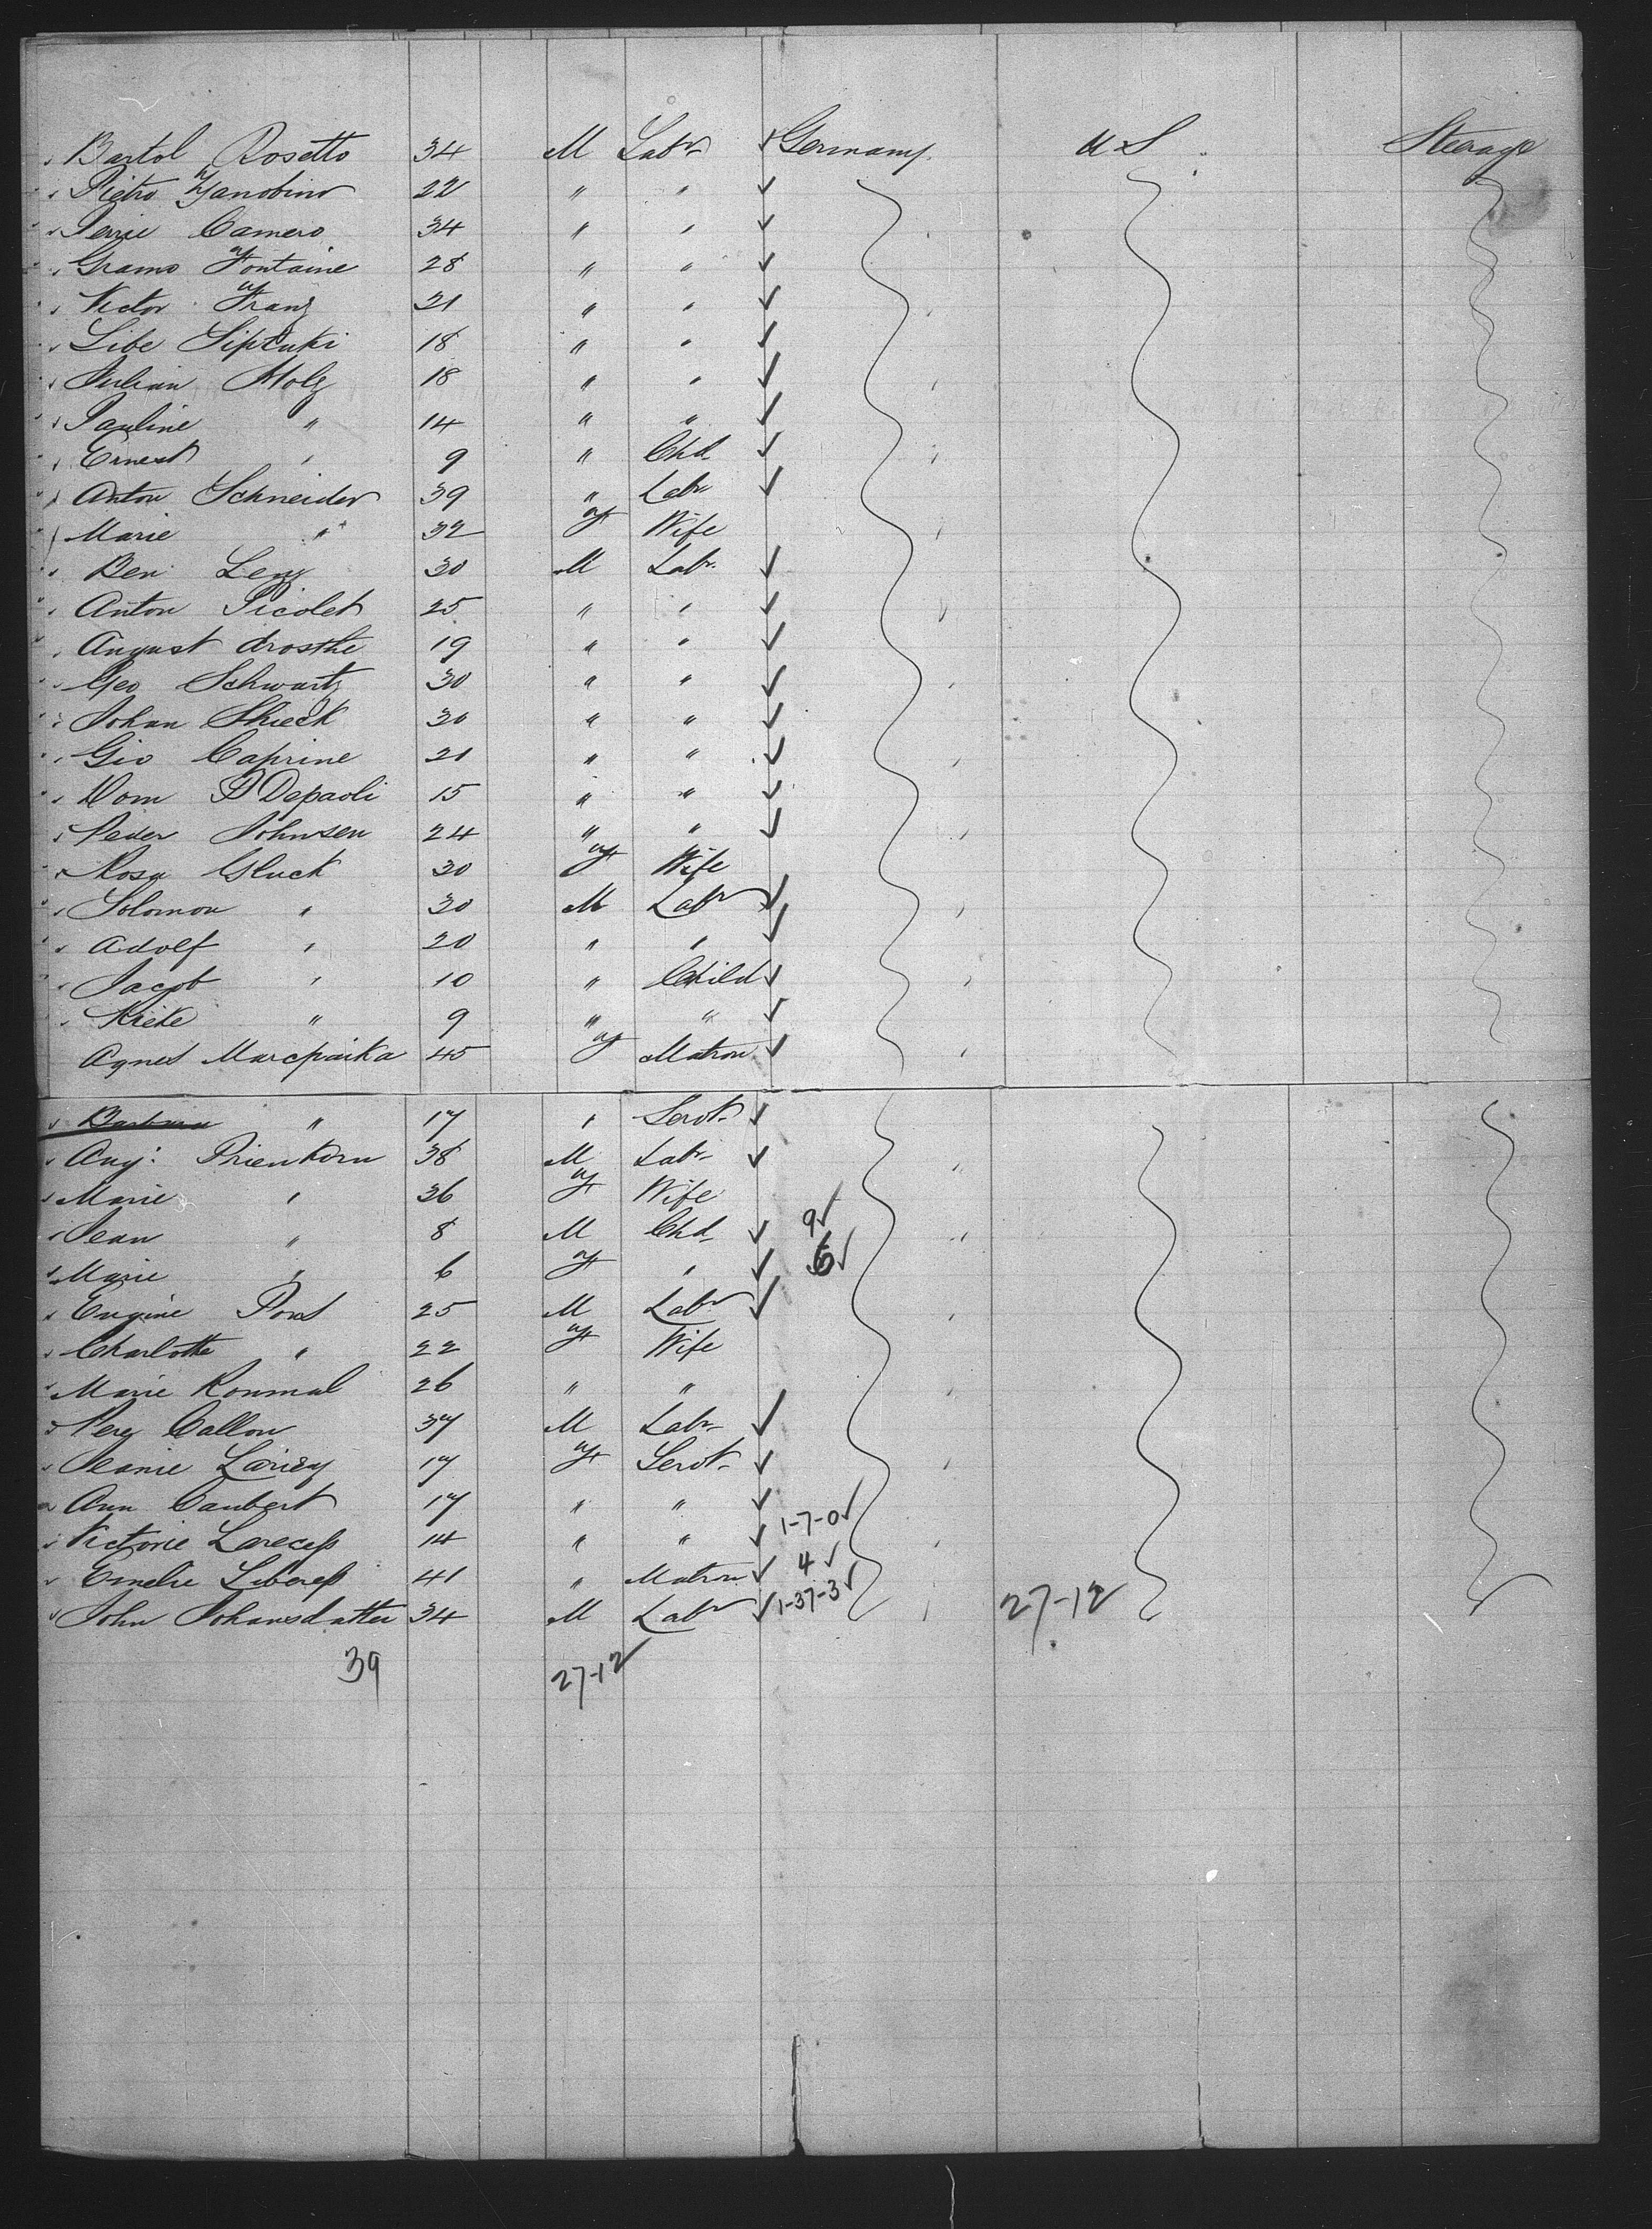 Bartol Rosetto 34 M Labr ✓ Germany. U S. Steerage
Pietro Zanobino 22 " " ✓
Perrie Camero 34 " " ✓
Gramo Fontaine 28 " " ✓
Victor Franz 21 " " ✓
Libe 18 " " ✓
Julian Molz 18 " " ✓
Pauline " 14 " " ✓
Ernest " 9 " Chd ✓
Anton Schneider 39 " Labr ✓
Marie " 32 F Wife
Ben Leng 30 M Labr ✓
Anton Picolet 25 " " ✓
August drosthe 19 " " ✓
Geo Schwartz 30 " " ✓
Johan Shieck 30 " " ✓
Gio Caprine 21 " " ✓
Dom P Depaoli 15 " " ✓
Peder Johnsen 24 " " ✓
Rosa Gluck 30 F Wife
Solomon " 30 M Labr ✓
Adolf " 20 " " ✓
Jacob " 10 " Child ✓
Rieke " 9 " " ✓
Agnes Marcpaika 45 F Matron ✓
Barbara " 17 " Servt ✓
Aug: Prienkorn 38 M Labr ✓
Marie " 36 F Wife
Jean " 8 M Chd ✓ 9✓
Marie " 6 F " ✓ 6✓
Eugine Pons 25 M Labr ✓
Charlotte " 22 F Wife
Marie Roumal 26 " "
Perez Callon 37 M Labr ✓
Jeanie 17 F Servt ✓
Ann Caubert 17 " " ✓
Victorie 14 " " ✓ 1-7-0✓
Emelie 41 " Matron ✓ 4 ✓
John Johansdatter 34 M Labr ✓ 1-37-3✓ 27-12
39 27-12✓